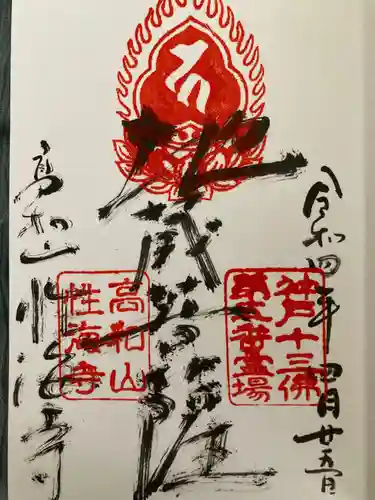 令和四年 四月廿五日
神戸十三佛
第五番霊場
地蔵菩薩
高和山
性海寺
高和山 性海寺